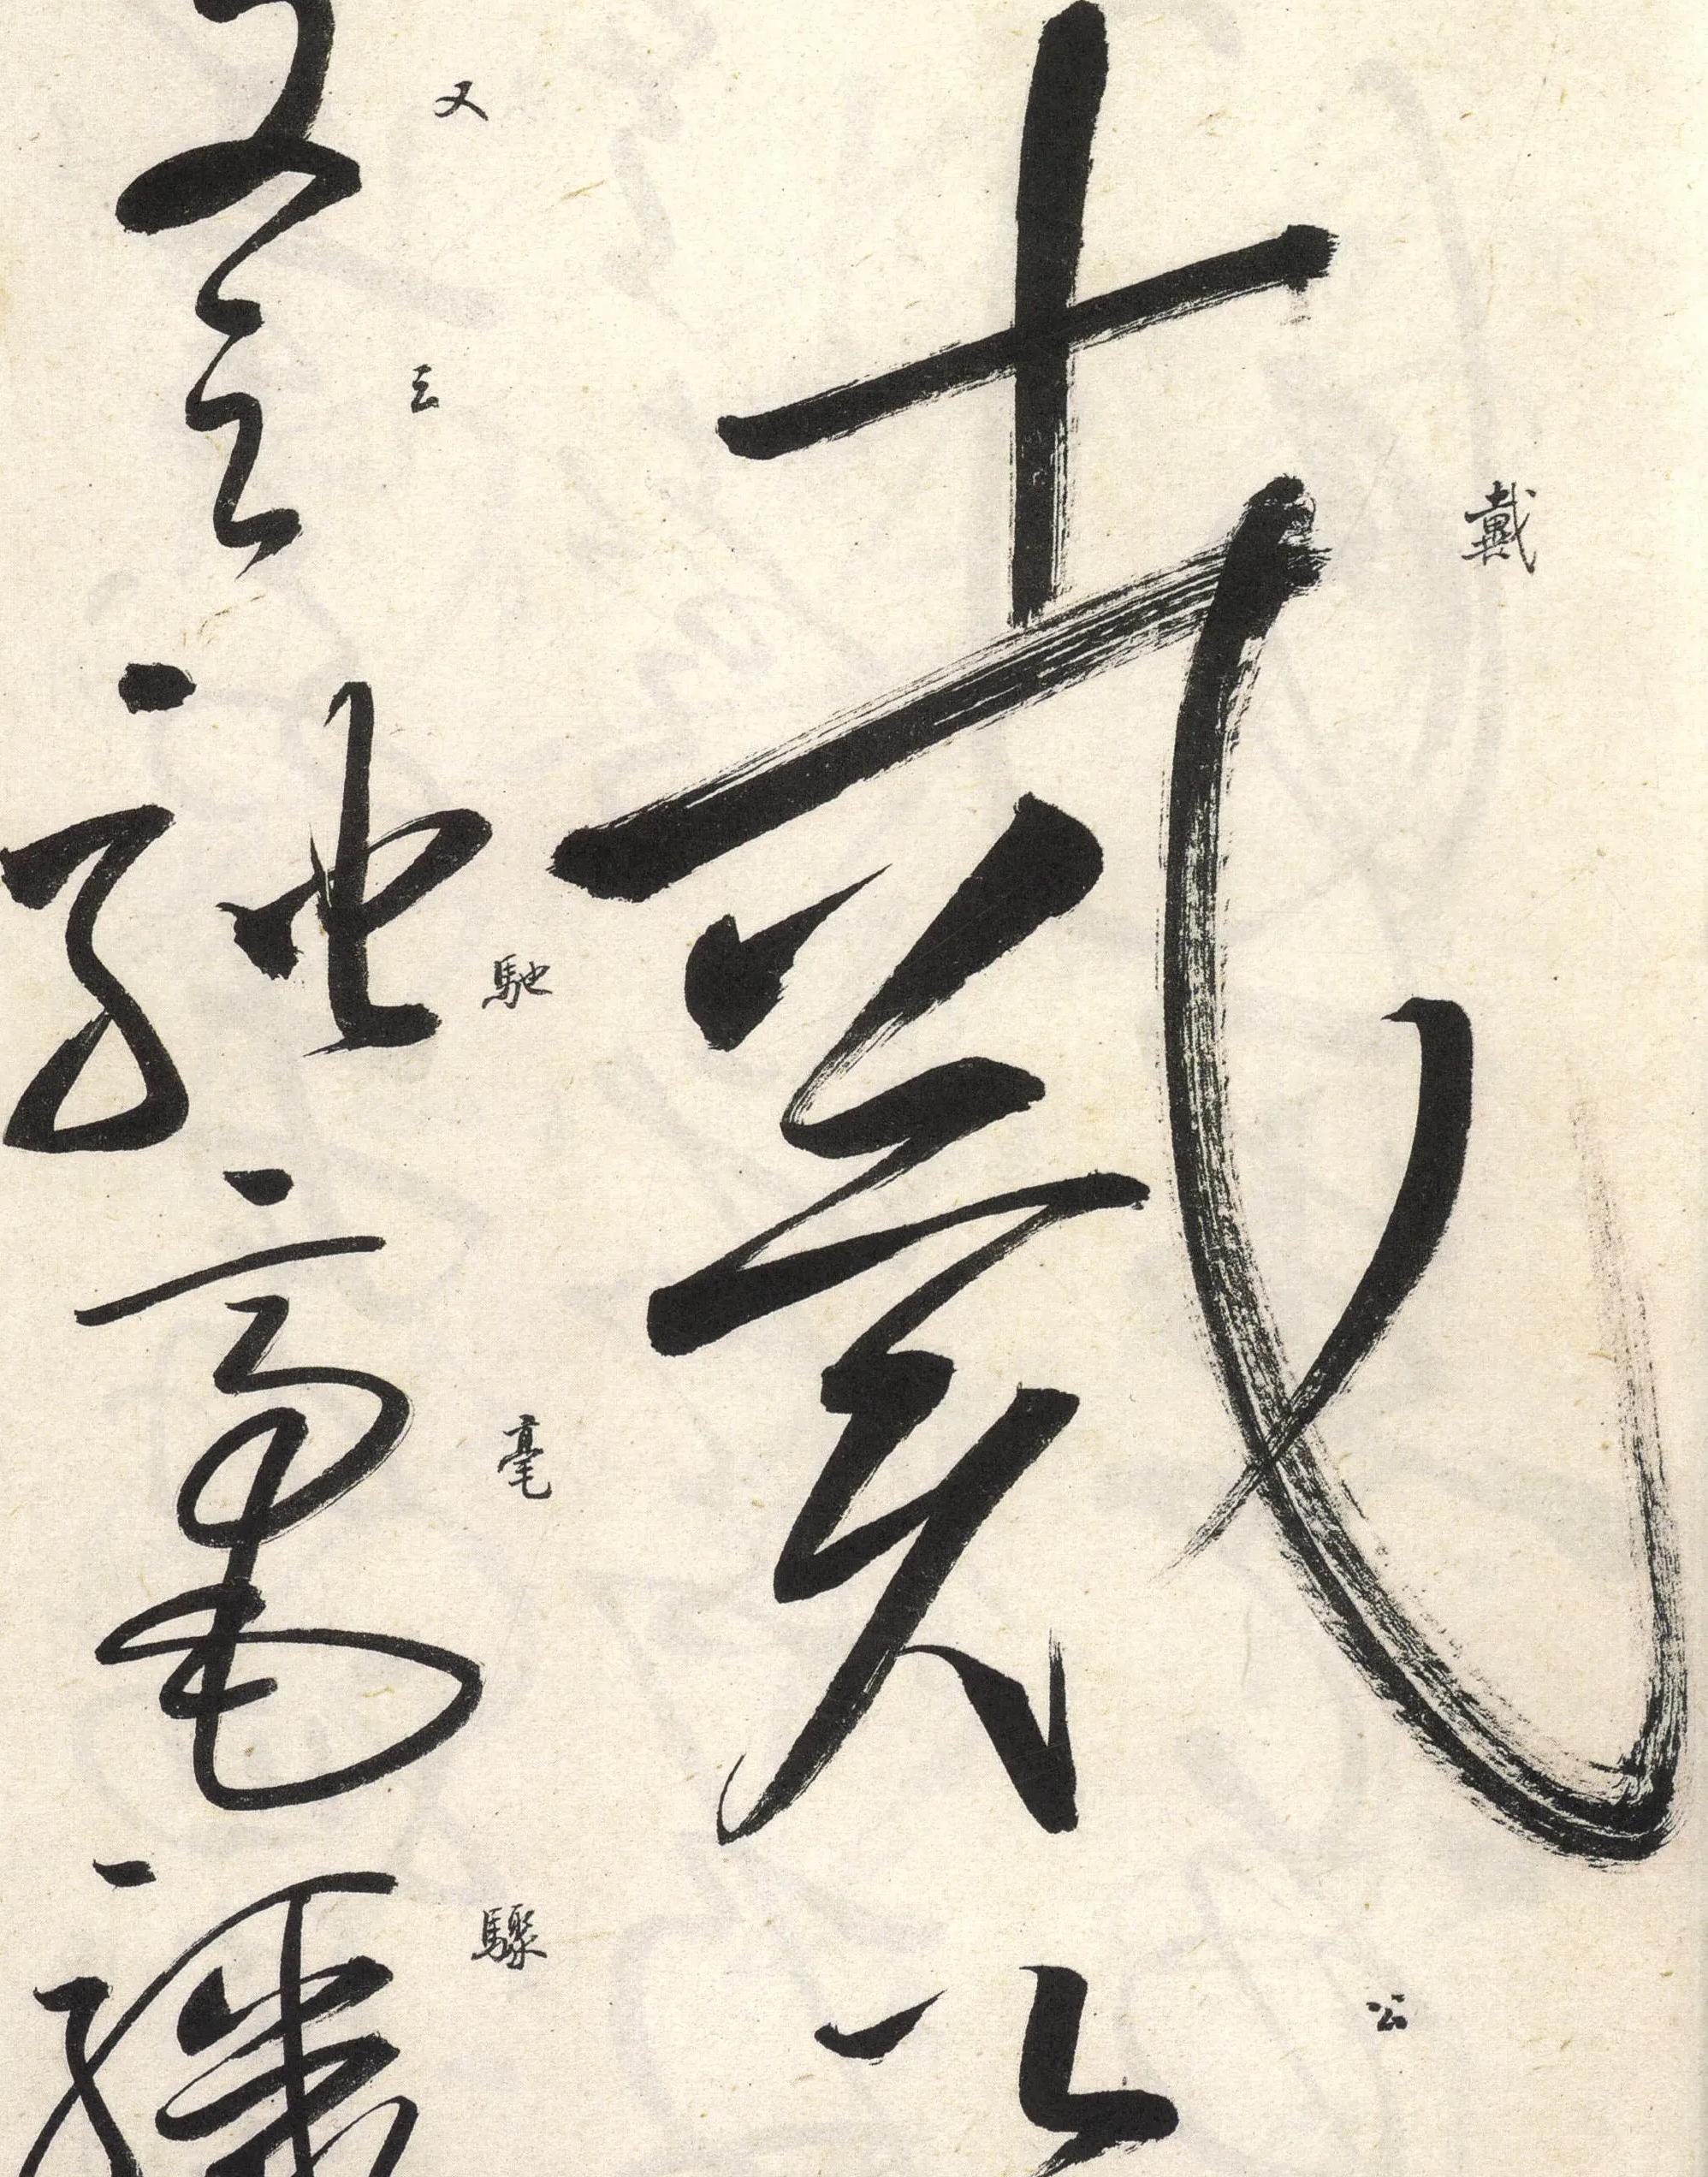 戴公
又云馳毫驟